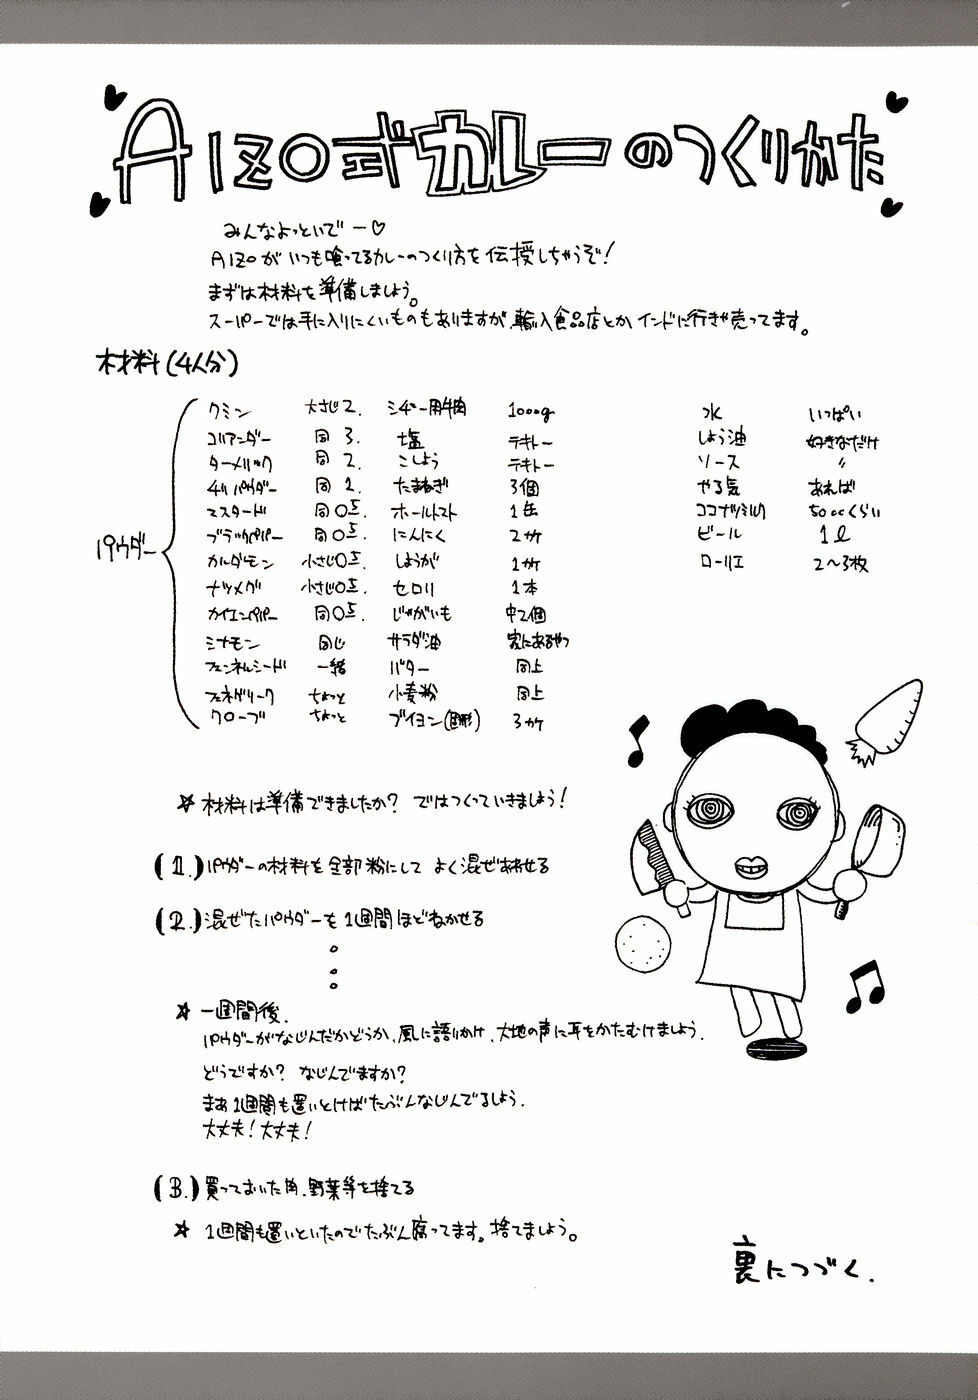 AIZO式カレーのつくりかた
みんなよっといでー♡
AIZOがいつも喰ってるカレーのつくり方を伝授しちゃうぞ!
まずは材料を準備しましょう。
スーパーでは手に入りにくいものもありますが、輸入食品店とかインドに行きゃ売ってます。
材料(4人分)
パウダー
クミン 大さじ2.
コリアンダー 同 3.
ターメリック 同 2.
チリパウダー 同 1.
マスタード 同 0.5.
ブラックペパー 同 0.5.
カルダモン 小さじ0.5.
ナツメグ 小さじ0.5.
カイエンペパー 同 0.5.
シナモン 同じ
フェンネルシード 一緒
フェネグリーク ちょっと
クローブ ちょっと
シチュー用牛肉 1000g
塩 テキトー
こしょう テキトー
たまねぎ 3個
ホールトマト 1缶
にんにく 2ケ
しょうが 1ケ
セロリ 1本
じゃがいも 中2個
サラダ油 家にあるやつ
バター 同上
小麦粉 同上
ブイヨン(固形) 3ケ
水 いっぱい
しょう油 好きなだけ
ソース 〃
やる気 あれば
ココナツミルク 50ccくらい
ビール 1ℓ
ローリエ 2〜3枚
☆ 材料は準備できましたか? ではつくっていきましょう!
(1.) パウダーの材料を全部粉にして よく混ぜあわせる
(2.) 混ぜたパウダーを1週間ほどねかせる
☆ 一週間後.
パウダーがなじんだかどうか、風に語りかけ、大地の声に耳をかたむけましょう.
どうですか? なじんでますか?
まあ1週間も置いとけばたぶんなじんでるしょう.
大丈夫!大丈夫!
(3.) 買っておいた肉、野菜等を捨てる
☆ 1週間も置いといたのでたぶん腐ってます。捨てましょう。
裏につづく.